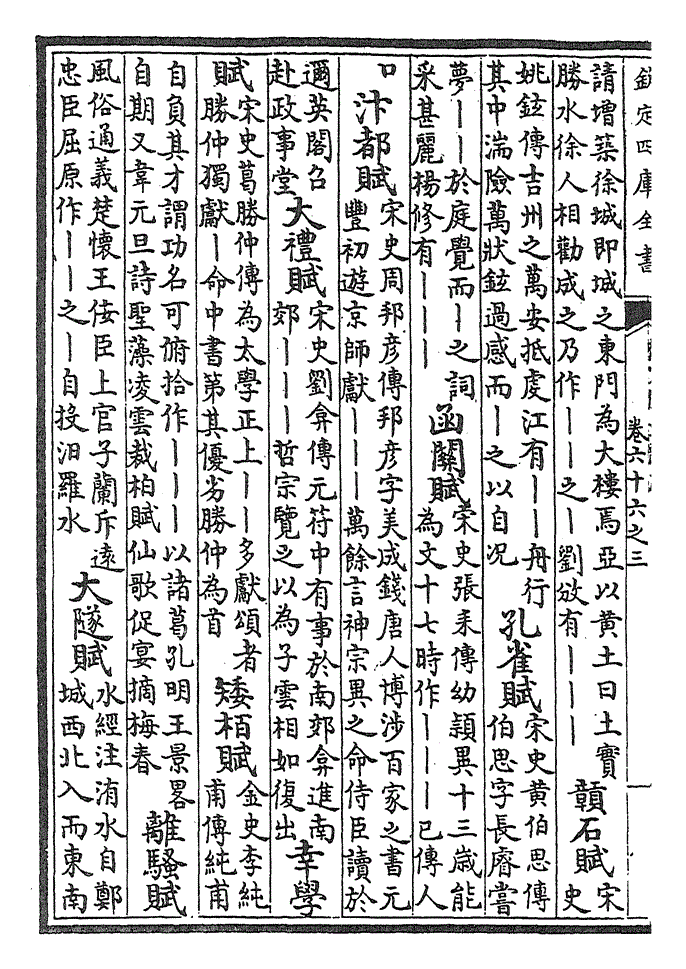 欽定四庫全書
卷六十六之三
請增築徐城即城之東門為大樓焉亞以黄土曰土實
勝水徐人相勸成之乃作——之—劉攽有———
贑石賦
宋
史
姚鉉傳吉州之萬安抵虔江有——舟行
其中湍險萬狀鉉過感而—之以自况
孔雀賦
宋史黄伯思傳
伯思字長睿嘗
夢——於庭覺而—之詞
采甚麗楊修有———
函關賦
宋史張耒傳幼頴異十三歳能
為文十七時作———已傳人
口
汴都賦
宋史周邦彦傳邦彦字美成錢唐人博涉百家之書元
豐初遊京師獻———萬餘言神宗異之命侍臣讀於
邇英閣召
赴政事堂
大禮賦
宋史劉弇傳元符中有事於南郊弇進南
郊———哲宗覽之以為子雲相如復出
幸學
賦
宋史葛勝仲傳為太學正上——多獻頌者
勝仲獨獻—命中書第其優劣勝仲為首
矮栢賦
金史李純
甫傳純甫
自負其才謂功名可俯拾作———以諸葛孔明王景畧
自期又韋元旦詩聖藻凌雲裁柏賦仙歌促宴摘梅春
離騷賦
風俗通義楚懷王佞臣上官子蘭斥遠
忠臣屈原作——之—自投汨羅水
大隧賦
水經注洧水自鄭
城西北入而東南